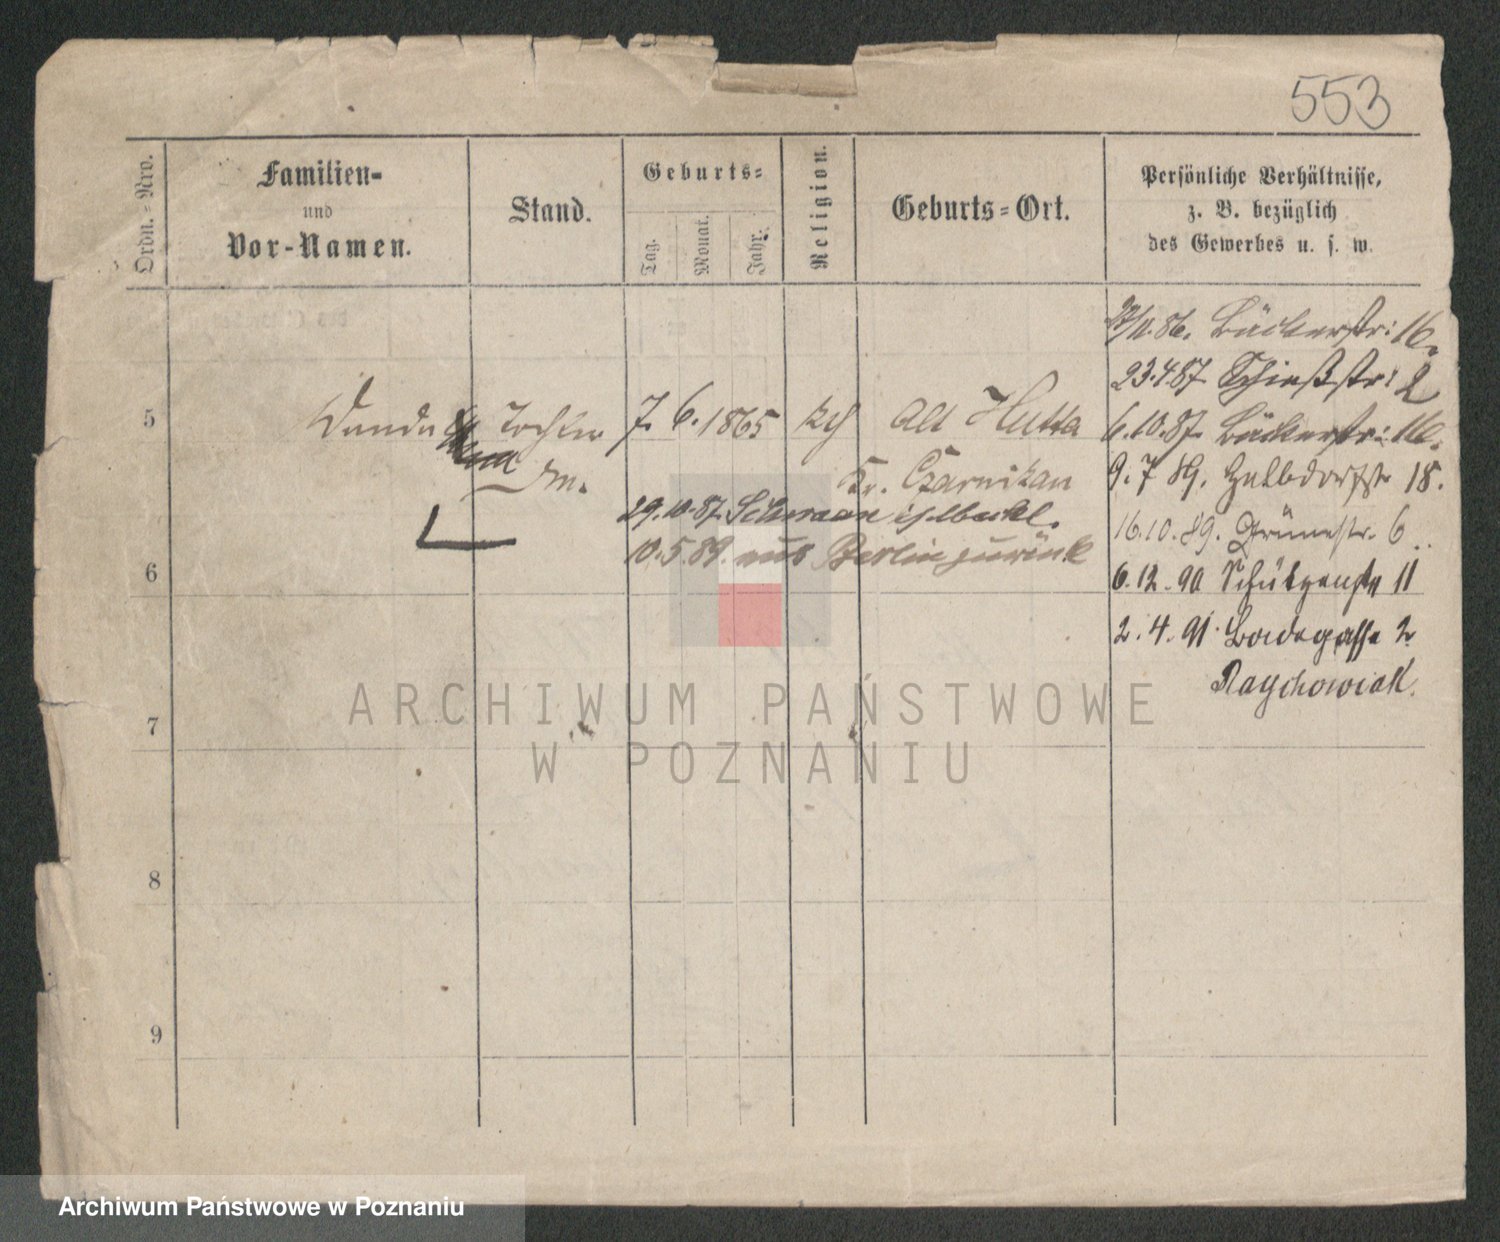 553
Ordn.-Nro.
Familien-
und
Vor-Namen.
Stand.
Geburts-
Tag.
Monat.
Jahr.
Religion.
Geburts-Ort.
Persönliche Verhältnisse,
z. B. bezüglich
des Gewerbes u. s. w.
86. Bäckerstr: 16.
23.4.87. Schießstr: 2
5 Wanda Tochter 7. 6. 1865 kth Alt Hutta 6.10.87. Bäckerstr: 16.
Kr. Czarnikau 9. 7 89. Halbdorfstr 18.
29.10.87.
16.10.89. Grünestr. 6
10.5.89. aus Berlin zurück
6 6.12.90 Schützenstr 11
2.4.91. 2
Raychowiak.
7
8
9
ARCHIWUM PAŃSTWOWE
W POZNANIU
Archiwum Państwowe w Poznaniu